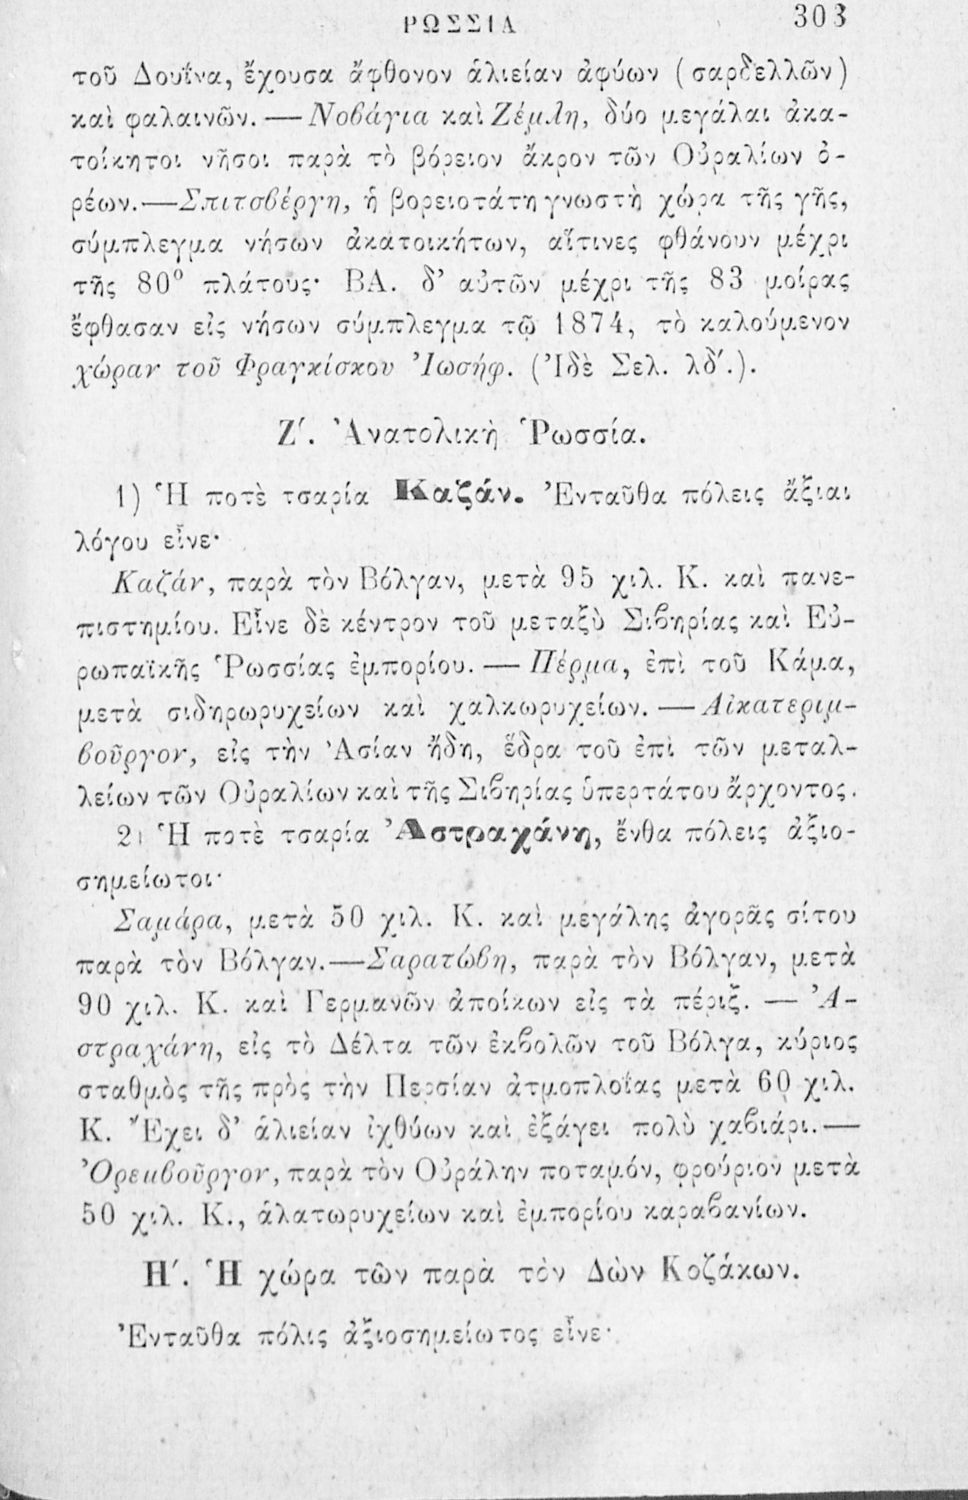 ΡΩΣΣΙΑ 303
τοῦ Δουΐνα, ἔχουσα ἄφθονον ἁλιείαν ἀφύων (σαρδελλῶν)
καὶ φαλαινῶν. — Νοβάγια καὶ Ζέμλη, δύο μεγάλαι ἀκα-
τοίκητοι νῆσοι παρὰ τὸ βόρειον ἄκρον τῶν Οὐραλίων ὀ-
ρέων. — Σπιτσβέργη, ἡ βορειοτάτη γνωστὴ χώρα τῆς γῆς,
σύμπλεγμα νήσων ἀκατοικήτων, αἵτινες φθάνουν μέχρι
τῆς 80° πλάτους· ΒΑ. δ' αὐτῶν μέχρι τῆς 83 μοίρας
ἔφθασαν εἰς νήσων σύμπλεγμα τῷ 1874, τὸ καλούμενον
χώραν τοῦ Φραγκίσκου Ἰωσήφ. (Ἰδὲ Σελ. λδ'.).
Ζ'. Ἀνατολικὴ Ῥωσσία.
1) Ἡ ποτὲ τσαρία Καζάν. Ἐνταῦθα πόλεις ἄξιαι
λόγου εἶνε·
Καζάν, παρὰ τὸν Βόλγαν, μετὰ 95 χιλ. Κ. καὶ πανε-
πιστημίου. Εἶνε δὲ κέντρον τοῦ μεταξὺ Σιβηρίας καὶ Εὐ-
ρωπαϊκῆς Ῥωσσίας ἐμπορίου. — Πέρμα, ἐπὶ τοῦ Κάμα,
μετὰ σιδηρωρυχείων καὶ χαλκωρυχείων. — Αἰκατεριμ-
βοῦργον, εἰς τὴν Ἀσίαν ἤδη, ἕδρα τοῦ ἐπὶ τῶν μεταλ-
λείων τῶν Οὐραλίων καὶ τῆς Σιβηρίας ὑπερτάτου ἄρχοντος.
2) Ἡ ποτὲ τσαρία Ἀστραχάνη, ἔνθα πόλεις ἀξιο-
σημείωτοι·
Σαμάρα, μετὰ 50 χιλ. Κ. καὶ μεγάλης ἀγορᾶς σίτου
παρὰ τὸν Βόλγαν. — Σαρατώβη, παρὰ τὸν Βόλγαν, μετὰ
90 χιλ. Κ. καὶ Γερμανῶν ἀποίκων εἰς τὰ πέριξ. — Ἀ-
στραχάνη, εἰς τὸ Δέλτα τῶν ἐκβολῶν τοῦ Βόλγα, κύριος
σταθμὸς τῆς πρὸς τὴν Περσίαν ἀτμοπλοΐας μετὰ 60 χιλ.
Κ. Ἔχει δ' ἁλιείαν ἰχθύων καὶ ἐξάγει πολὺ χαβιάρι. —
Ὀρεμβοῦργον, παρὰ τὸν Οὐράλην ποταμόν, φρούριον μετὰ
50 χιλ. Κ., ἁλατωρυχείων καὶ ἐμπορίου καραβανίων.
Η'. Ἡ χώρα τῶν παρὰ τὸν Δὼν Κοζάκων.
Ἐνταῦθα πόλις ἀξιοσημείωτος εἶνε·